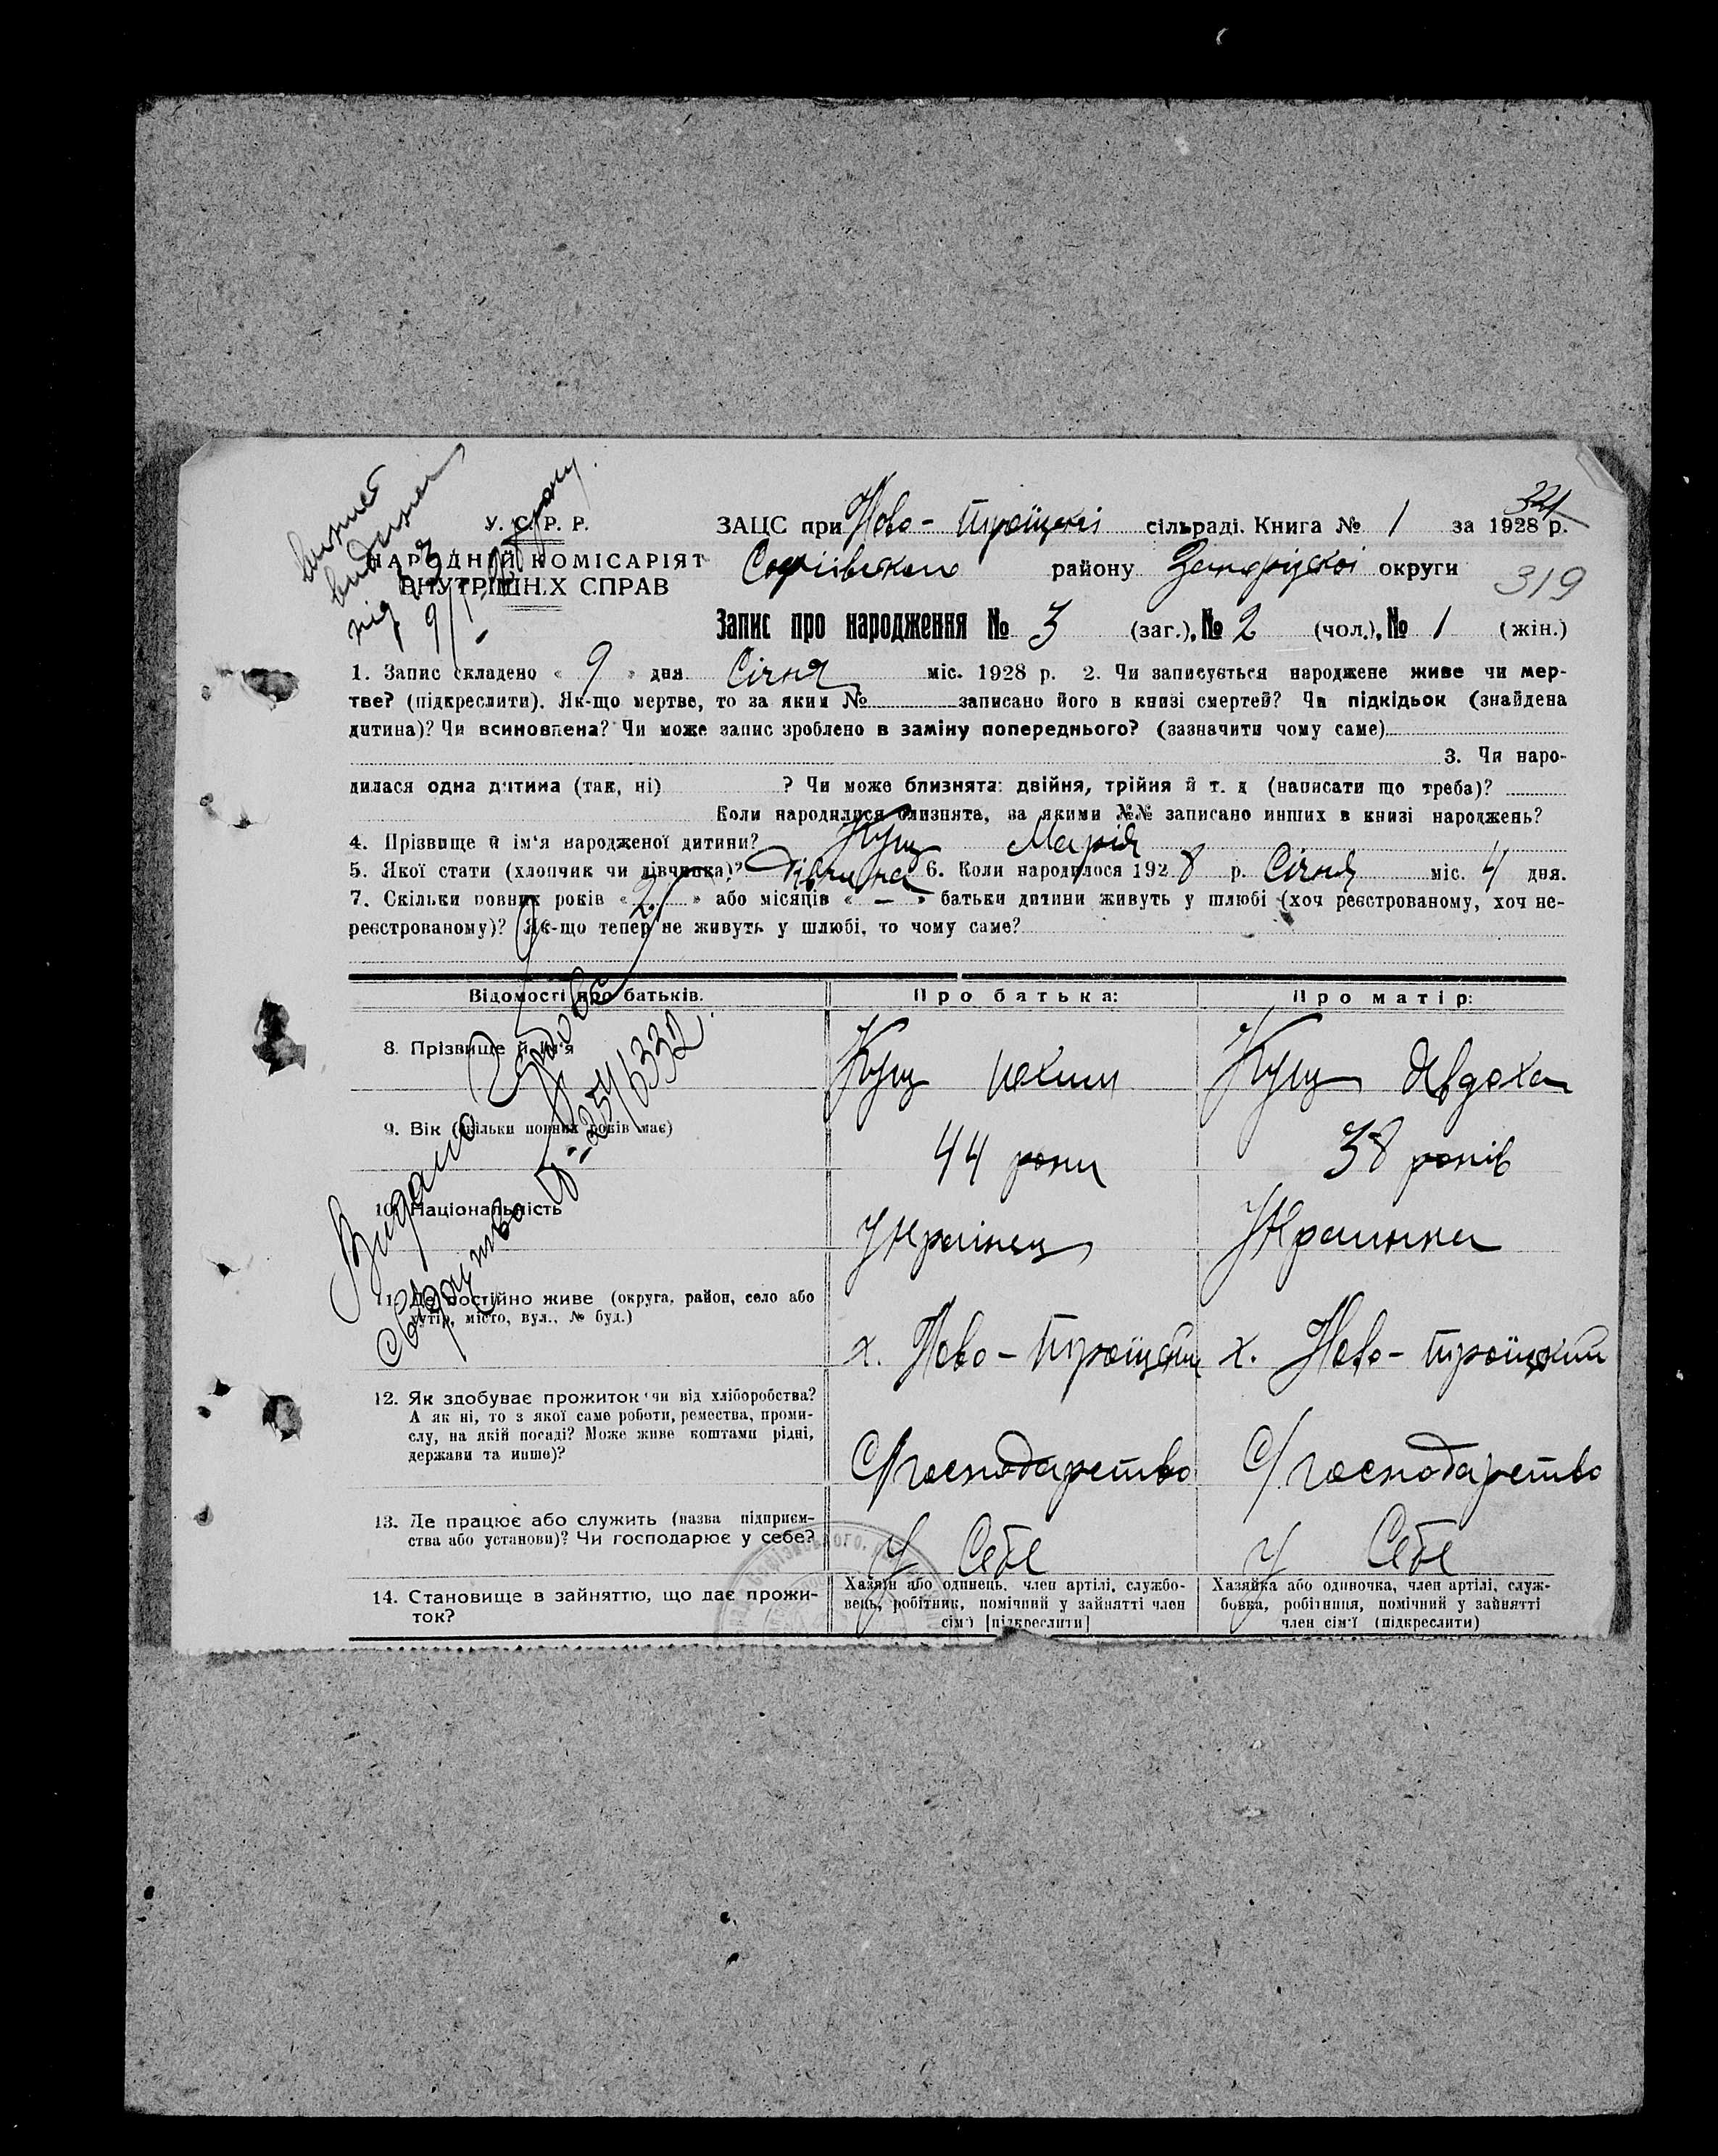 У. С. Р. Р.
НАРОДНІЙ КОМІСАРІЯТ
ВНУТРІШН.Х СПРАВ
324
ЗАЦС при Ново-Троїцкій сільраді. Книга № 1 за 1928 р.
Софіївском району Запоріжскої округи
319
Запис про народження № 3 (заг.), № 2 (чол.), № 1 (жін.)
1. Запис складено « 9 » дня Січня міс. 1928 р. 2. Чи записується народжене живе чи мер-
тве? (підкреслити). Як-що мертве, то за яким № записано його в книзі смертей? Чи підкідьок (знайдена
дитина)? Чи всиновлена? Чи може запис зроблено в заміну попереднього? (зазначити чому саме)
3. Чи наро-
дилася одна дитина (так, ні) ? Чи може близнята: двійня, трійня й т. д (написати що треба)?
Коли народилися близнята, за якими №№ записано инших в книзі народжень?
4. Прізвище й ім'я народженої дитини? Кущ Марія
5. Якої стати (хлопчик чи дівчинка)? Дівчина 6. Коли народилося 1928 р. Січня міс. 4 дня.
7. Скільки повних років « 21 » або місяців « — » батьки дитини живуть у шлюбі (хоч реєстрованому, хоч не-
реєстрованому)? Як-що тепер не живуть у шлюбі, то чому саме?
Відомості про батьків. Про батька: Про матір:
8. Прізвище й ім'я Кущ Юхим Кущ Явдоха
9. Вік (скільки повних років має) 44 роки 38 років
10. Національність Українец Украинка
11. Де постійно живе (округа, район, село або
хутір, місто, вул., № буд.)
х. Ново-Троїцкий х. Ново-Троїцкий
12. Як здобуває прожиток чи від хліборобства?
А як ні, то з якої саме роботи, ремества, проми-
слу, на якій посаді? Може живе коштами рідні,
держави та инше)?
С/господарство С/господарство
13. Де працює або служить (назва підприєм-
ства або установи)? Чи господарює у себе?
У Себе У Себе
14. Становище в зайняттю, що дає прожи-
ток?
Хазяїн або одинець, член артілі, службо-
вець, робітник, помічний у зайнятті член
сім'ї [підкреслити]
Хазяйка або одиночка, член артілі, служ-
бовка, робітниця, помічний у зайнятті
член сім'ї (підкреслити)
Видано
свідоцтво